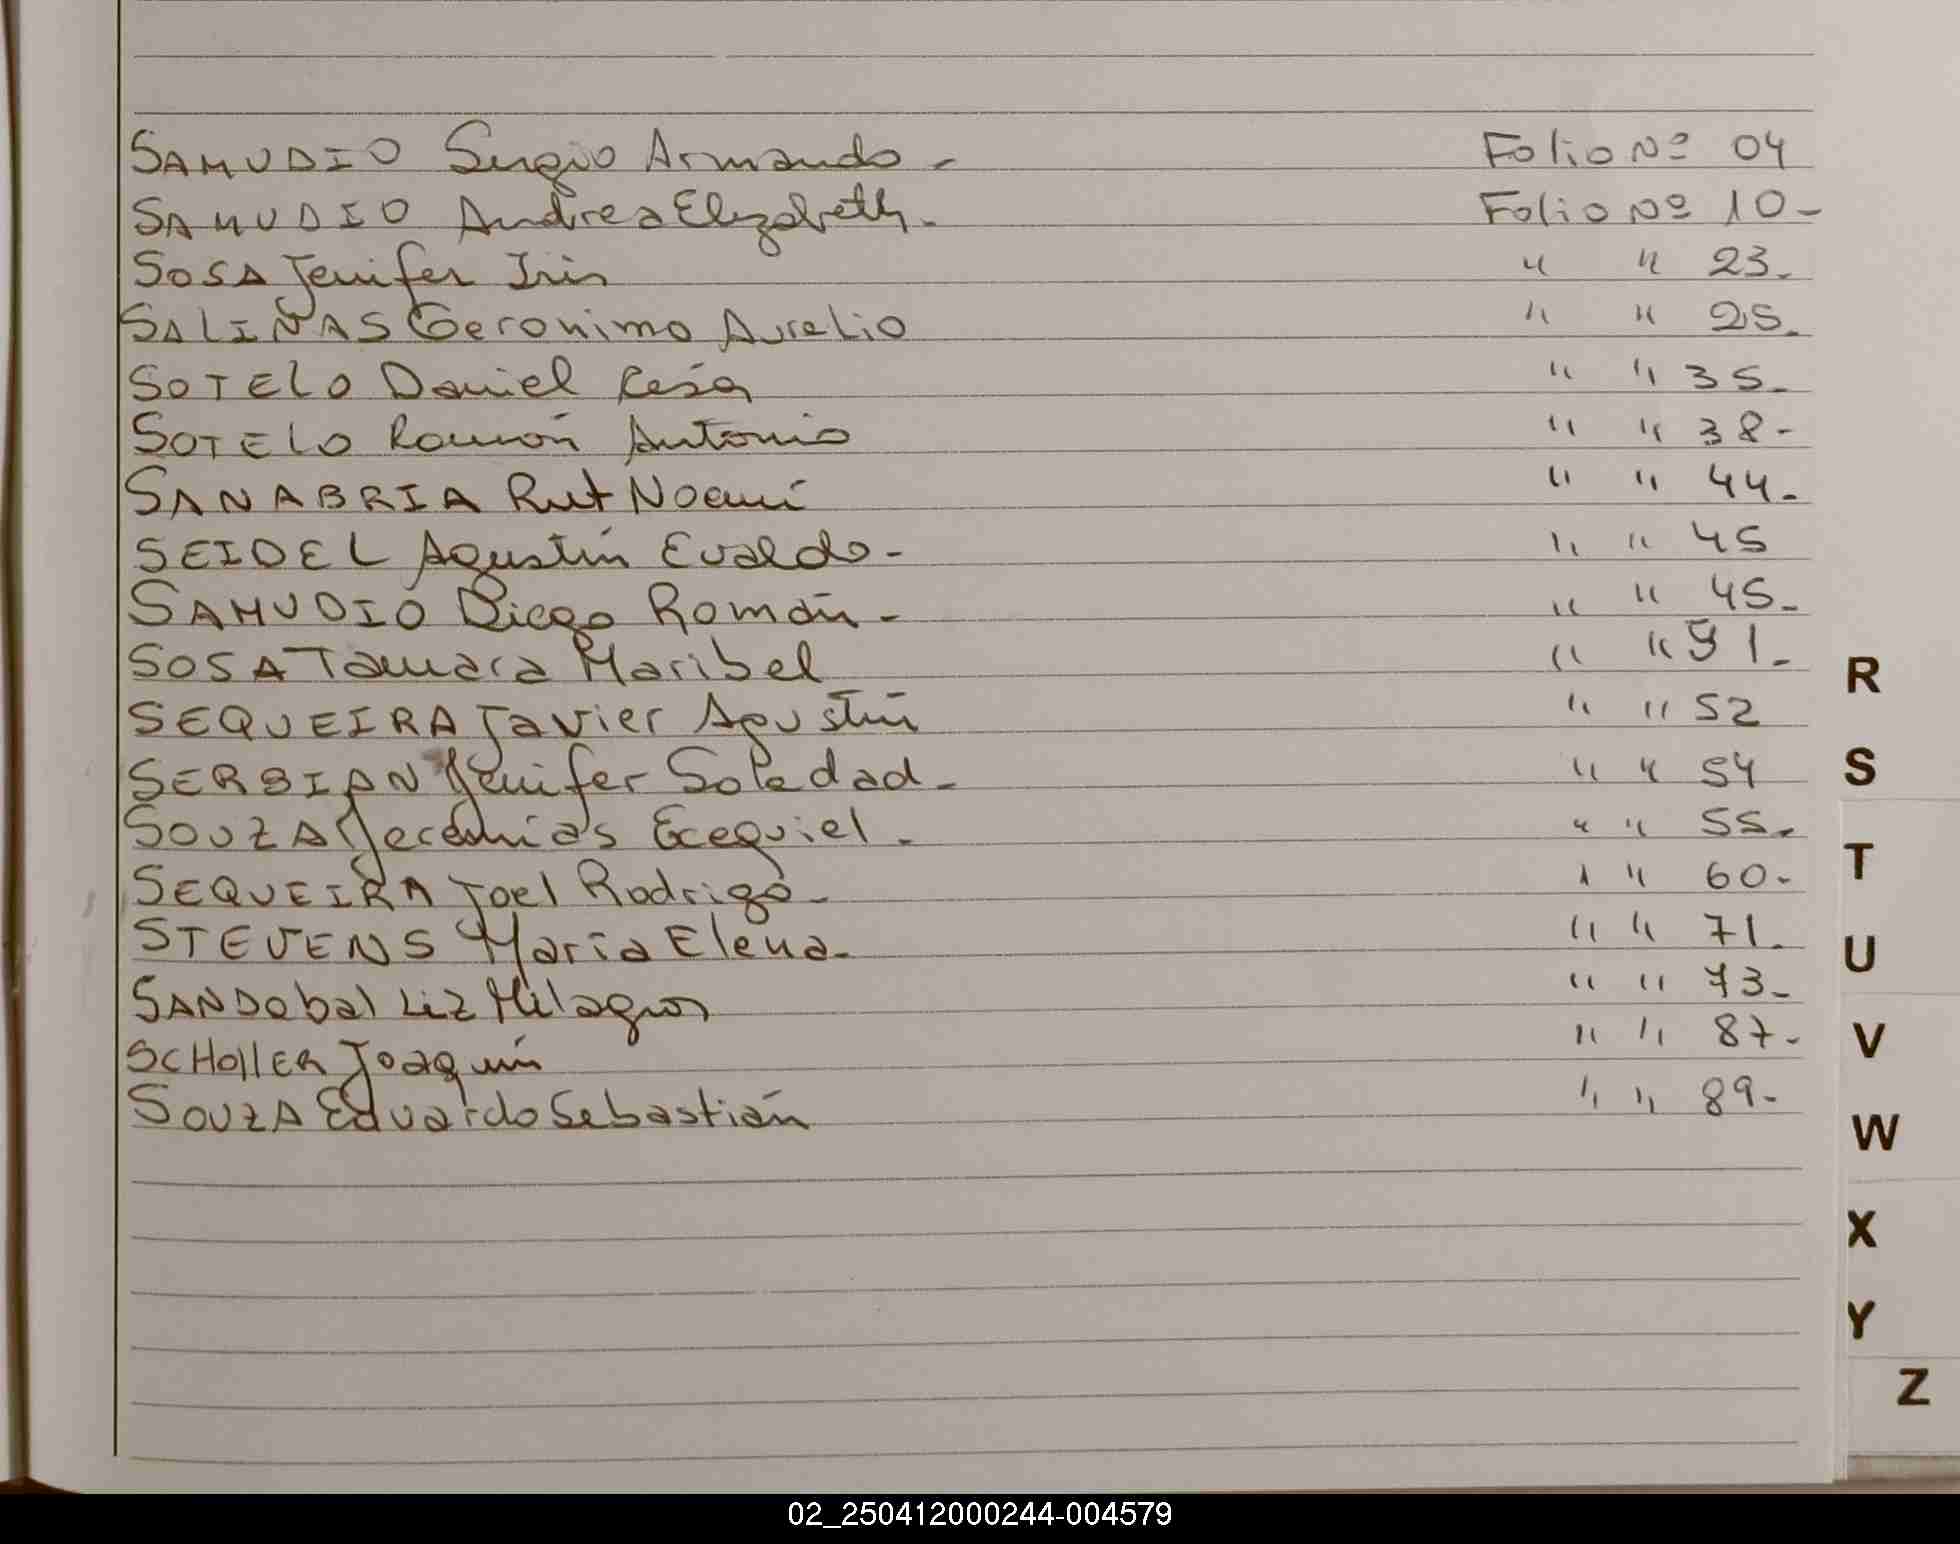 SAMUDIO Sergio Armando - Folio Nº 04
SAMUDIO Andrea Elizabeth - Folio Nº 10 -
SOSA Jenifer Iris " " 23 -
SALINAS Geronimo Aurelio " " 25 -
SOTELO Daniel Cesar " " 35 -
SOTELO Ramón Antonio " " 38 -
SANABRIA Rut Noemí " " 44 -
SEIDEL Agustín Evaldo - " " 45
SAMUDIO Diego Román - " " 45 -
SOSA Tamara Maribel " " 51 -
SEQUEIRA Javier Agustín " " 52
SERBIAN Jenifer Soledad - " " 54
SOUZA Jeremías Ecequiel - " " 55 -
SEQUEIRA Joel Rodrigo - " " 60 -
STEVENS María Elena - " " 71 -
SANDObal Liz Milagros " " 73 -
SCHOllER Joaquín " " 87 -
SOUZA Eduardo Sebastián " " 89 -
R
S
T
U
V
W
X
Y
Z
02_250412000244-004579